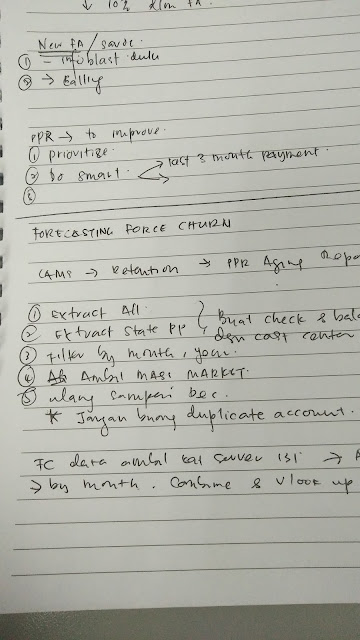 ↓ 10% dlm FA.
New FA / savde.
① - infoblast dulu
② → Calling
PPR → to improve.
① prioritize.
② be smart. → last 3 month payment.
③
FORECASTING FORCE CHURN
CAMS → Retention → PPR Aging Repo
① Extract All.
② Extract State PP } Buat check & bala
dgn cost center
③ Filter by month, year.
④ Ambil MASS MARKET.
⑤ ulang sampai Dec.
* Jangan buang duplicate account.
FC data ambil kat server 131 →
→ by month. Combine & Vlook up